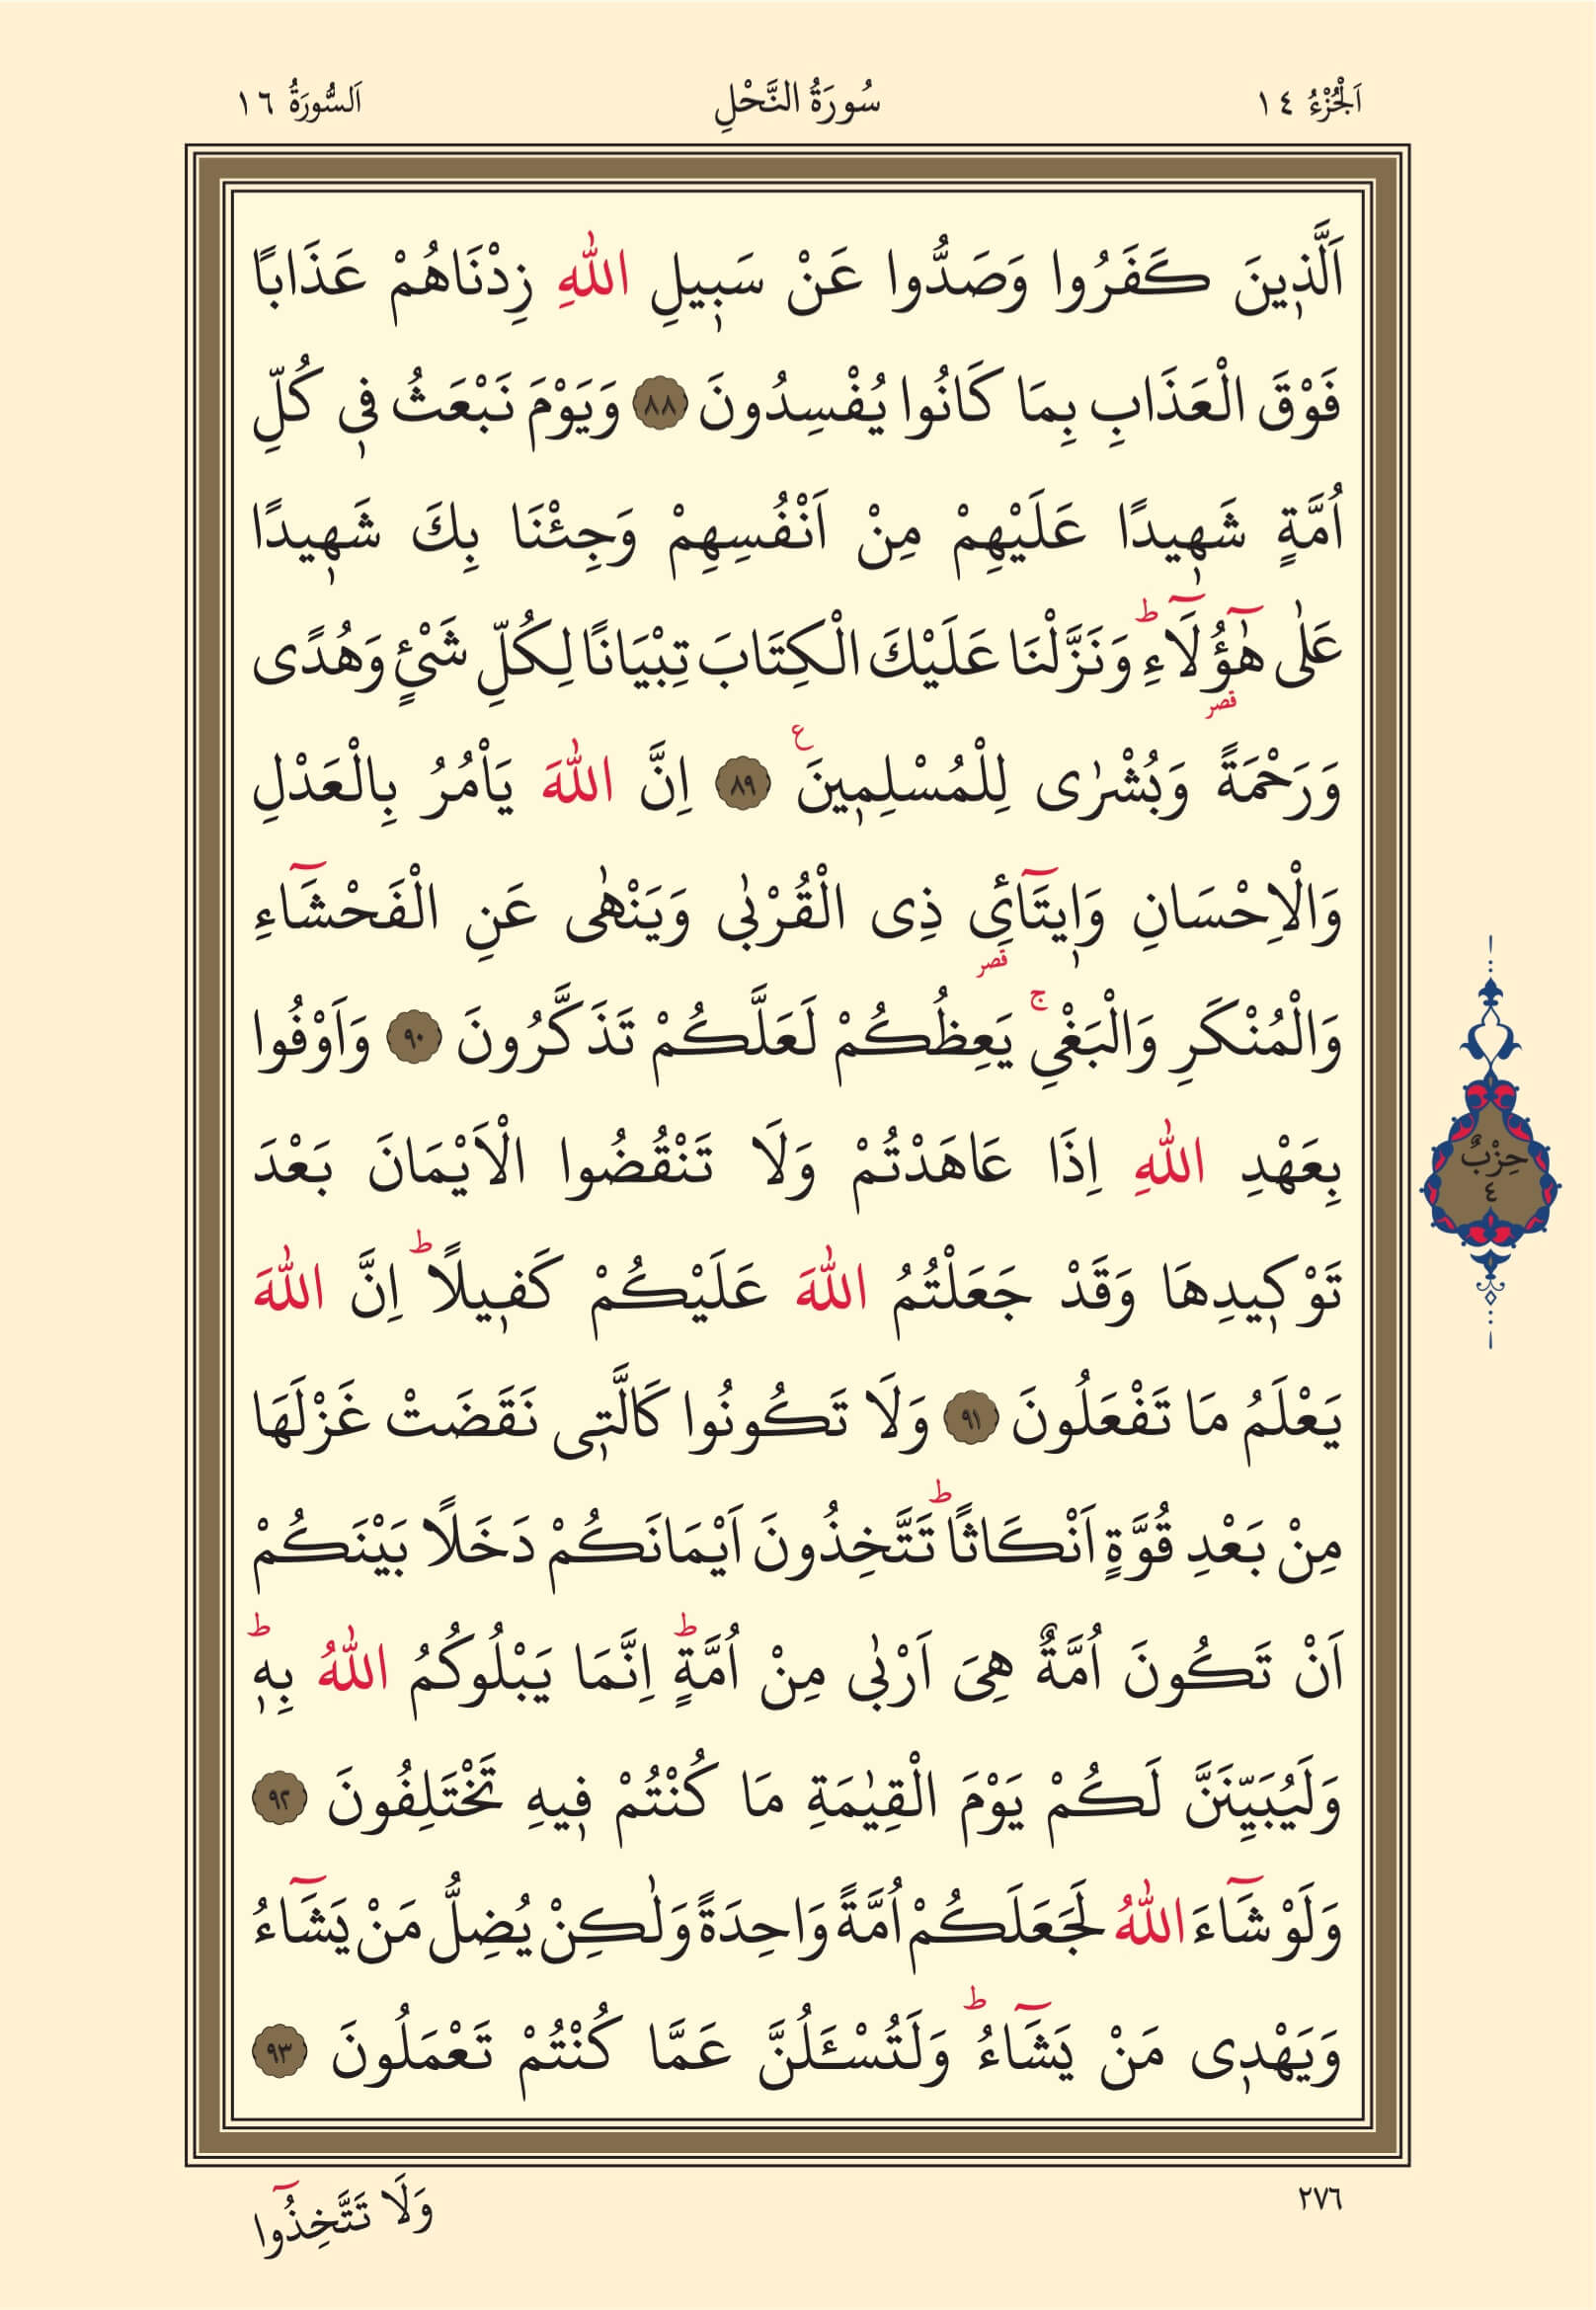 اَلْجُزْءُ ١٤
سُورَةُ النَّحْلِ
اَلسُّورَةُ ١٦
اَلَّذ۪ينَ كَفَرُوا وَصَدُّوا عَنْ سَب۪يلِ اللّٰهِ زِدْنَاهُمْ عَذَابًا
فَوْقَ الْعَذَابِ بِمَا كَانُوا يُفْسِدُونَ ٨٨ وَيَوْمَ نَبْعَثُ ف۪ي كُلِّ
اُمَّةٍ شَه۪يدًا عَلَيْهِمْ مِنْ اَنْفُسِهِمْ وَجِئْنَا بِكَ شَه۪يدًا
عَلٰى هٰٓؤُ۬لَٓاءِۜ وَنَزَّلْنَا عَلَيْكَ الْكِتَابَ تِبْيَانًا لِكُلِّ شَيْئٍ وَهُدًى
قصر
وَرَحْمَةً وَبُشْرٰى لِلْمُسْلِم۪ينَ ع ٨٩ اِنَّ اللّٰهَ يَاْمُرُ بِالْعَدْلِ
وَالْاِحْسَانِ وَا۪يتَٓائِ ذِي الْقُرْبٰى وَيَنْهٰى عَنِ الْفَحْشَٓاءِ
قصر
وَالْمُنْكَرِ وَالْبَغْيِۚ يَعِظُكُمْ لَعَلَّكُمْ تَذَكَّرُونَ ٩٠ وَاَوْفُوا
بِعَهْدِ اللّٰهِ اِذَا عَاهَدْتُمْ وَلَا تَنْقُضُوا الْاَيْمَانَ بَعْدَ
تَوْك۪يدِهَا وَقَدْ جَعَلْتُمُ اللّٰهَ عَلَيْكُمْ كَف۪يلًاۜ اِنَّ اللّٰهَ
يَعْلَمُ مَا تَفْعَلُونَ ٩١ وَلَا تَكُونُوا كَالَّت۪ي نَقَضَتْ غَزْلَهَا
مِنْ بَعْدِ قُوَّةٍ اَنْكَاثًاۜ تَتَّخِذُونَ اَيْمَانَكُمْ دَخَلًا بَيْنَكُمْ
اَنْ تَكُونَ اُمَّةٌ هِيَ اَرْبٰى مِنْ اُمَّةٍۜ اِنَّمَا يَبْلُوكُمُ اللّٰهُ بِه۪ۜ
وَلَيُبَيِّنَنَّ لَكُمْ يَوْمَ الْقِيٰمَةِ مَا كُنْتُمْ ف۪يهِ تَخْتَلِفُونَ ٩٢
وَلَوْ شَٓاءَ اللّٰهُ لَجَعَلَكُمْ اُمَّةً وَاحِدَةً وَلٰكِنْ يُضِلُّ مَنْ يَشَٓاءُ
وَيَهْد۪ي مَنْ يَشَٓاءُۜ وَلَتُسْـَٔلُنَّ عَمَّا كُنْتُمْ تَعْمَلُونَ ٩٣
حِزْبٌ
٤
٢٧٦
وَلَا تَتَّخِذُٓوا